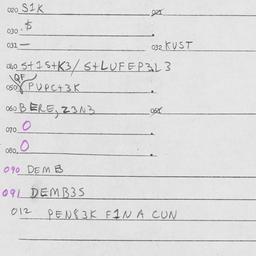 020 S1K 021
030. $
031 — 032 KUST
040 S+1S+K3/ S+LUFEP3L3
QF
050 PUPC+3K
060 BERE, Z3N3 061
070 O
080. O
090 DEMB
091 DEMB3S
012 PEN83K F1NA CUN